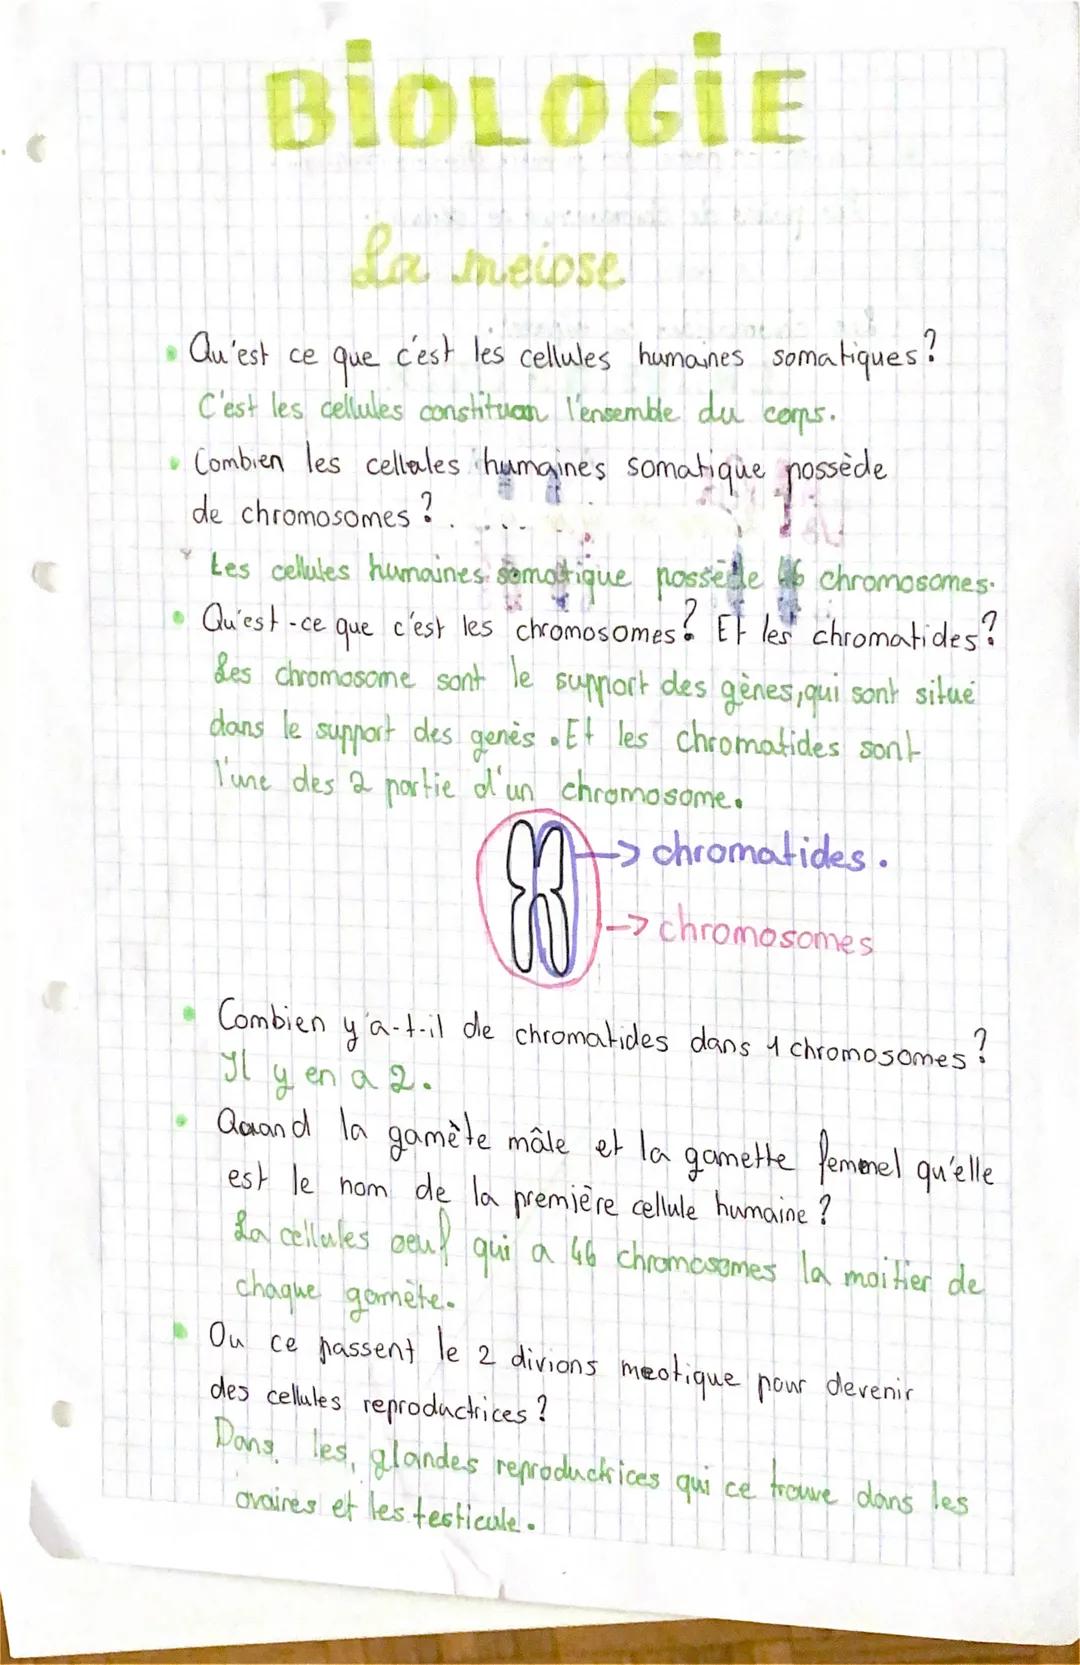 BiOLOGiE
La meiose
Qu'est ce que c'est les cellules humaines somatiques?
C'est les cellules constituan l'ensemble du corps.
Combien les cellules humaines somatique possède
de chromosomes?
Les cellules humaines somatique possède 46 chromosomes.
Qu'est-ce que c'est les chromosomes? Et les chromatides?
Les chromosome sont le support des gènes, qui sont situé
dans le support des genès. Et les chromatides sont
l'une des 2 partie d'un chromosome.
-> chromatides.
-> chromosomes
Combien y'a-t-il de chromatides dans 1 chromosomes?
Il y en a 2.
Quand la gamète mâle et la gamette femmel qu'elle
est le nom de la première cellule humaine?
La cellules oeuf qui a 46 chromosomes la moitier de
chaque gamète.
Ou ce passent le 2 divions meotique pour devenir
des cellules reproductrices?
Dans les, glandes reproductrices qui ce trouve dans les
ovaires et les testicule.